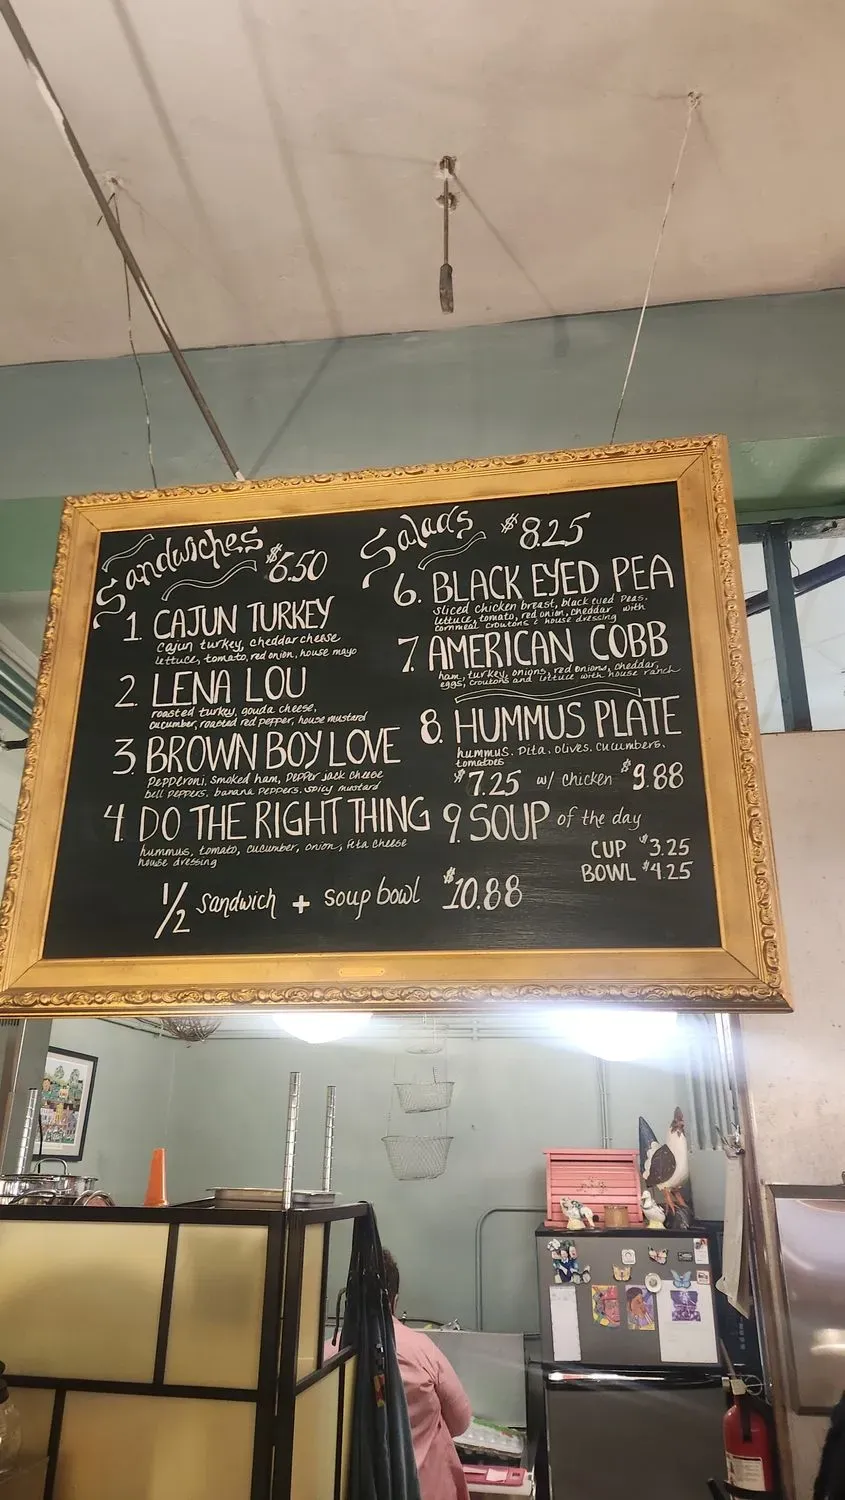 Sandwiches $6.50
1. CAJUN TURKEY
cajun turkey, cheddar cheese
lettuce, tomato, red onion, house mayo
2. LENA LOU
roasted turkey, gouda cheese,
cucumber, roasted red pepper, house mustard
3. BROWN BOY LOVE
Pepperoni, smoked ham, pepper jack cheese
bell peppers, banana peppers, spicy mustard
4. DO THE RIGHT THING
hummus, tomato, cucumber, onion, feta cheese
house dressing
Salads $8.25
6. BLACK EYED PEA
sliced chicken breast, black eyed peas,
lettuce, tomato, red onion, cheddar with
cornmeal croutons & house dressing
7. AMERICAN COBB
ham, turkey, onions, red onions, cheddar,
eggs, croutons and lettuce with house ranch
8. HUMMUS PLATE
hummus, pita, olives, cucumbers,
tomatoes
$7.25 w/ chicken $9.88
9. SOUP of the day
CUP $3.25
BOWL $4.25
1/2 sandwich + soup bowl $10.88